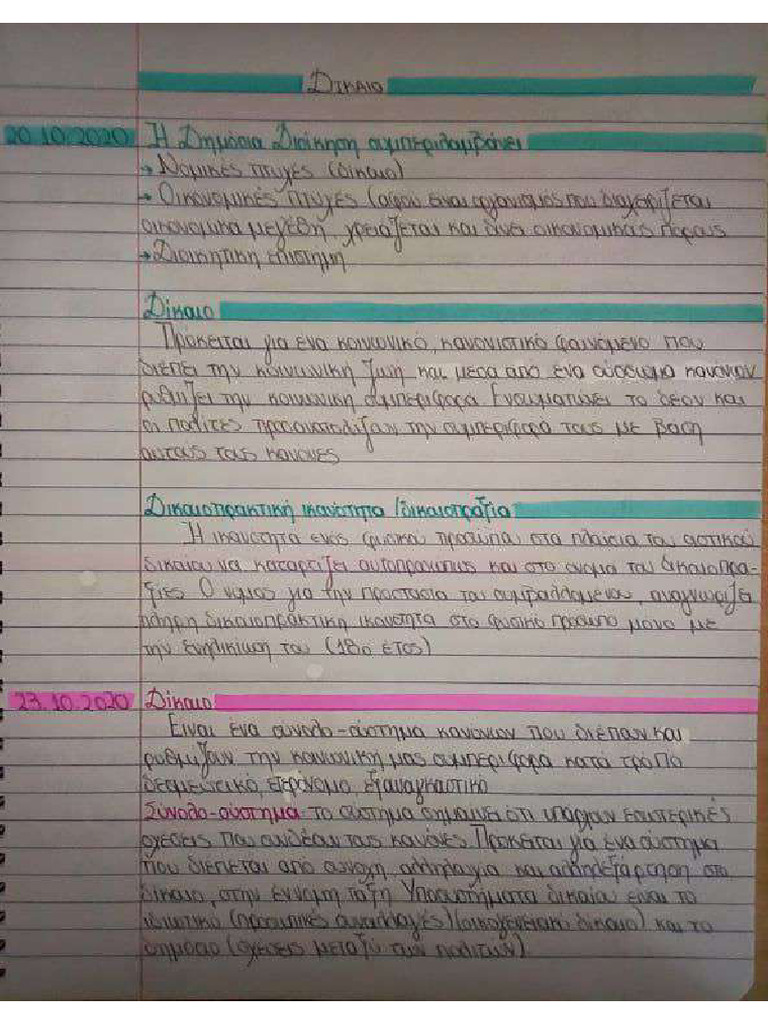 Δικαιο
20.10.2020 Η Δημόσια Διοίκηση συμπεριλαμβάνει
→ Νομικές πτυχές (δίκαιο)
→ Οικονομικές πτυχές (αφού είναι οργανισμός που διαχειρίζεται
οικονομικα μεγέθη, χρειάζεται και δίνει οικονομικους πόρους
→ Διοικητική επιστημη
Δίκαιο
Πρόκειται για ενα κοινωνικό, κανονιστικό φαινόμενο που
διέπει την κοινωνική ζωή και μεσα από ένα σύστημα κανόνων
ρυθμίζει την κοινωνική συμπεριφορά Ενσωματώνει το δέον και
οι πολίτες προσανατολίζουν την συμπεριφορά τους με βαση
αυτους τους κανονες
Δικαιοπρακτική ικανότητα/δικαιοπραξία
Η ικανοτητα ενός φυσικού προσώπου στα πλαίσια του αστικού
δικαίου να καταρτίζει αυτοπροσωπως και στο ονομα του δικαιοπρα-
ξιες Ο νομος για την προστασια του συμβαλλομενου, αναγνωρίζει
πληρη δικαιοπρακτικη ικανότητα στο φυσικό προσωπο μονο με
την ενηλικίωση του (18ο ετος)
23.10.2020 Δίκαιο
Ειναι ένα σύνολο-σύστημα κανονων που διέπουν και
ρυθμιζουν την κοινωνική μας συμπεριφορα κατά τροπο
δεσμευτικό, ετερόνομο, εξαναγκαστικο
Σύνολο-σύστημα το σύστημα σημαίνει ότι υπάρχουν εσωτερικές
σχεσεις που συνδέουν τους κανόνες Προκειται για ένα σύστημα
που διέπεται από συνοχη, αλληλουχια και αλληλεξάρτηση στο
δικαιο, στην έννομη ταξη Υποσυστήματα δικαίου ειναι το
ιδιωτικο (προσωπικές συναλλαγές) (οικογενειακο δικαιο) και το
δημοσιο (σχεσεις μεταξύ των πολιτων)